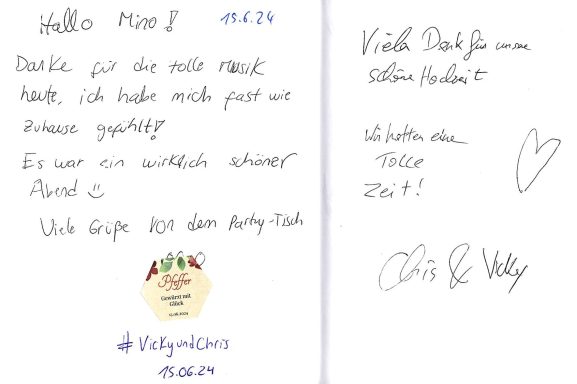 Hallo Mino!
15.6.24
Danke für die tolle Musik
heute, ich habe mich fast wie
zuhause gefühlt!
Es war ein wirklich schöner
Abend
Viele Grüße von dem Party-Tisch
Pfeffer
Gewürzt mit
Glück
15.06.2024
#VickyundChris
15.06.24
Viele Dank für unsere
schöne Hochzeit
Wir hatten eine
TOLLE
Zeit!
Chris & Vicky